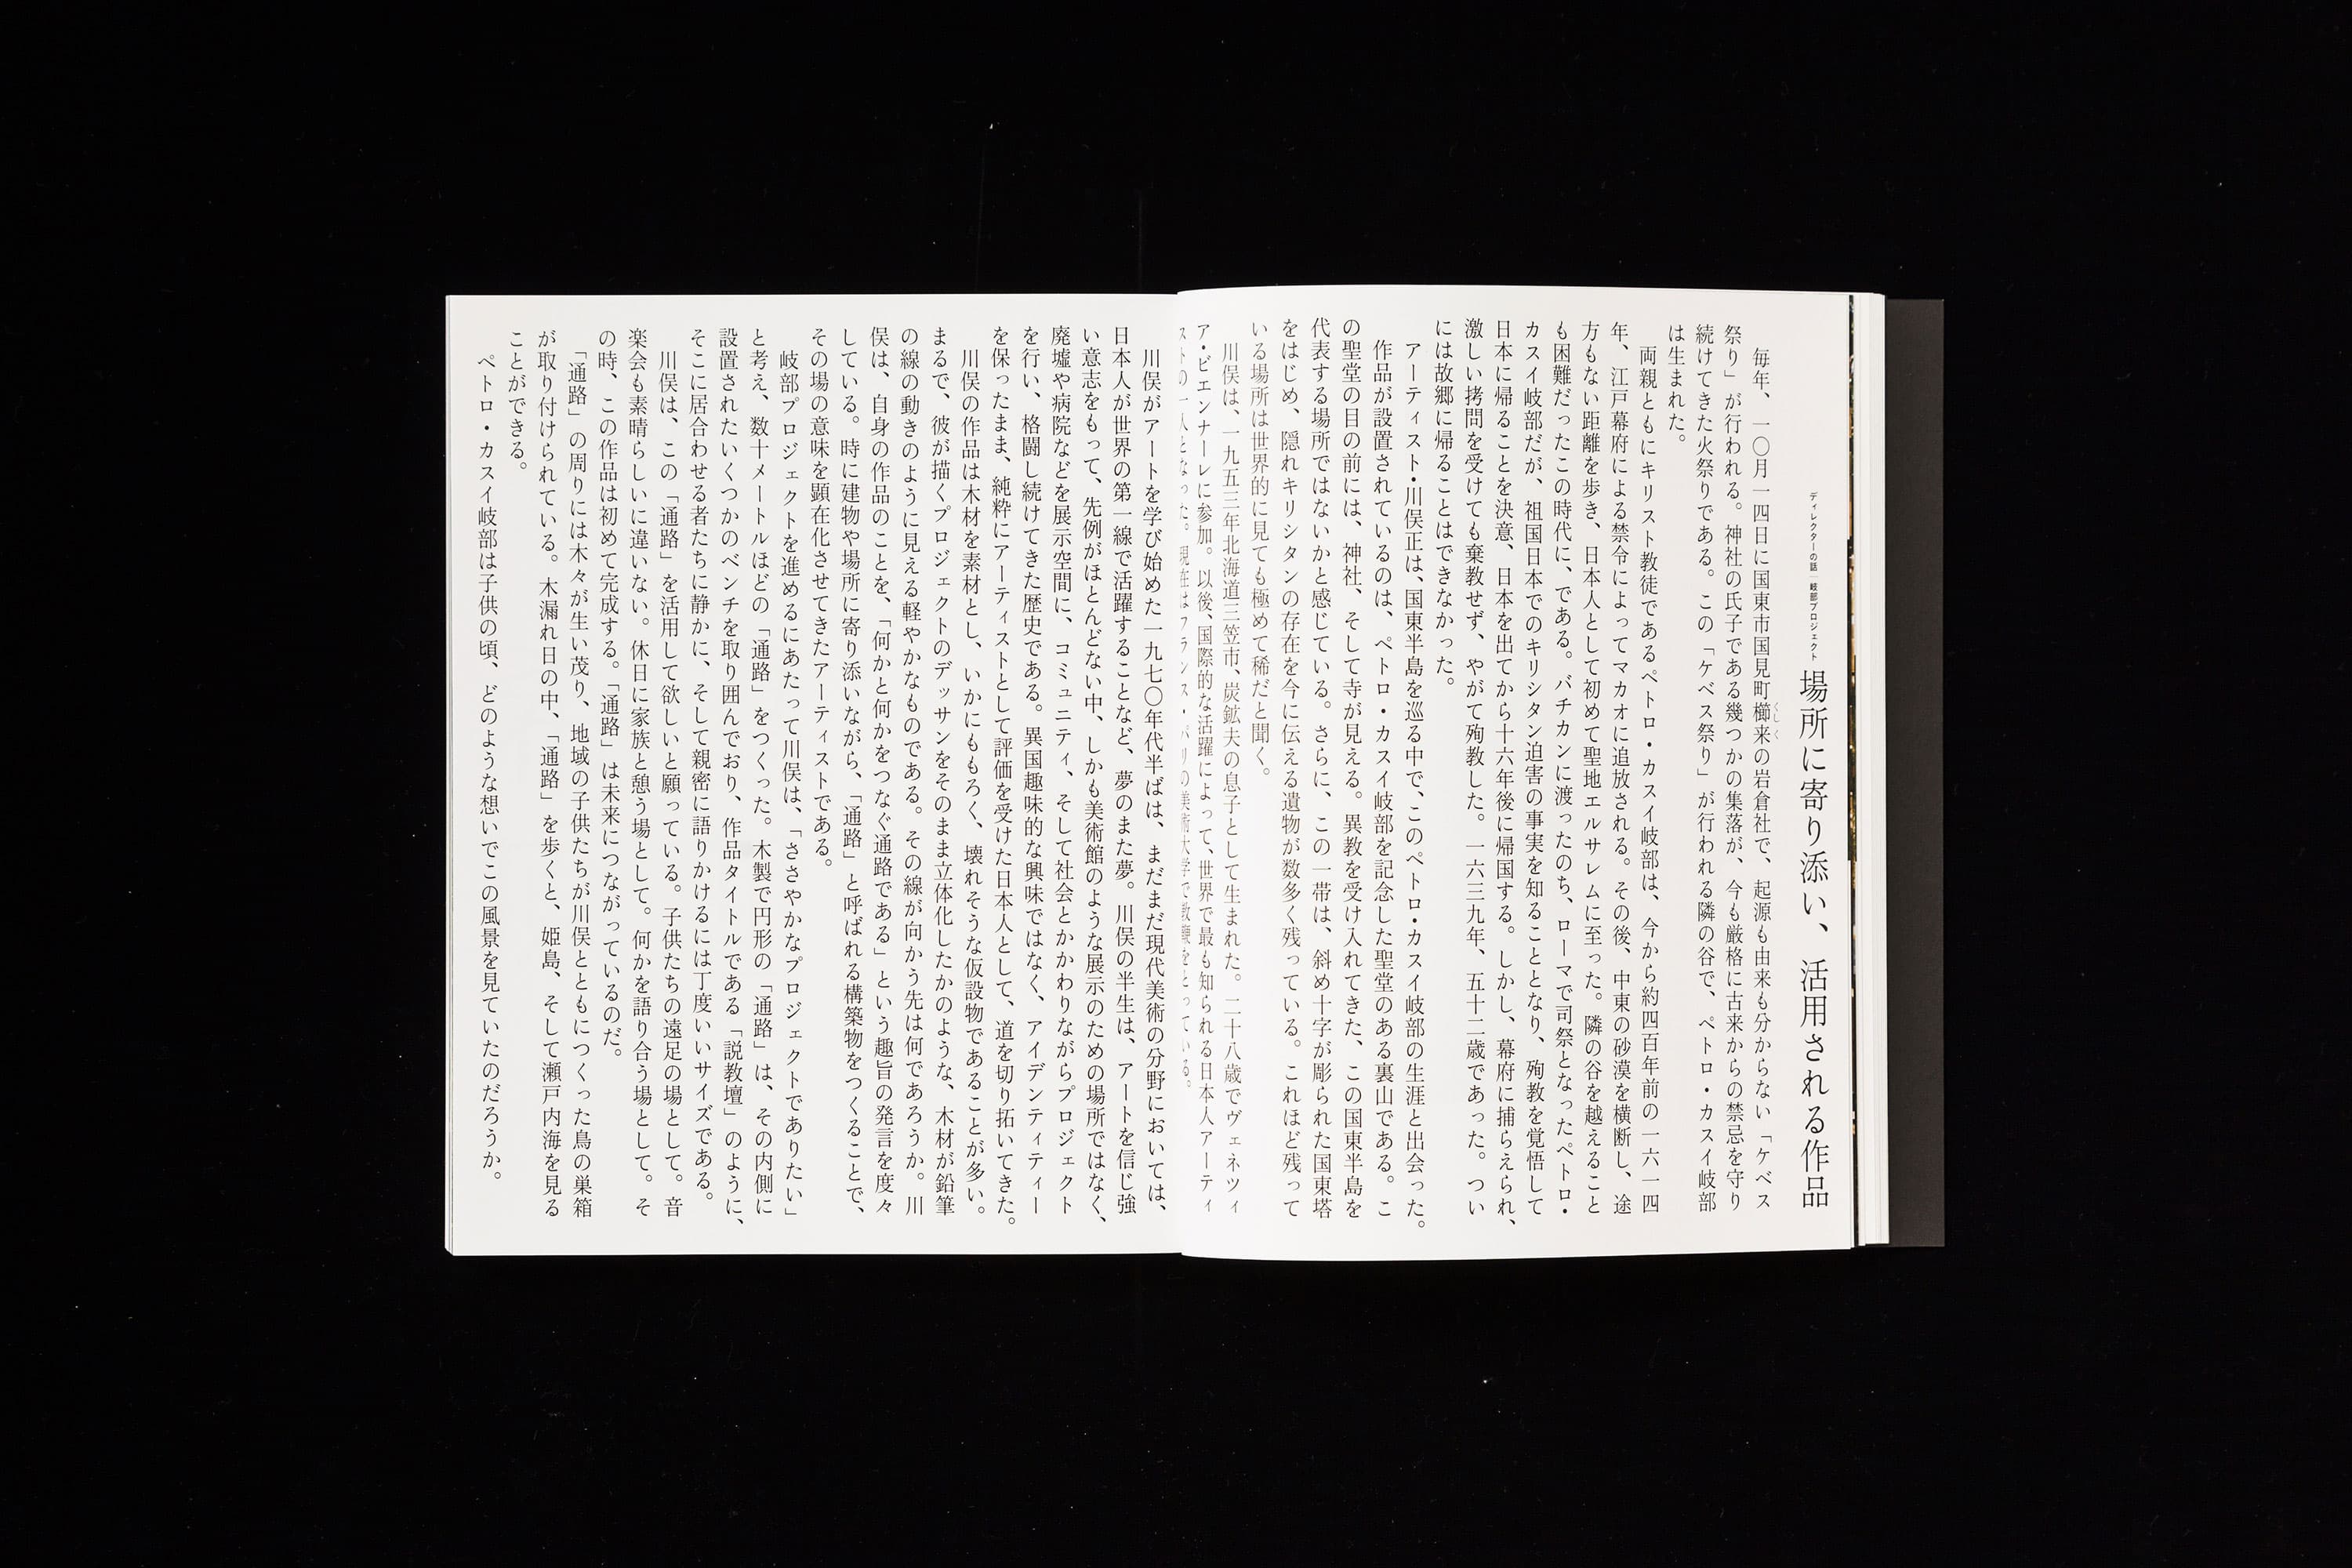 ディレクターの話｜岐部プロジェクト
場所に寄り添い、活用される作品
毎年、一〇月一四日に国東市国見町櫛来の岩倉社で、起源も由来も分からない「ケベス
くしく
祭り」が行われる。神社の氏子である幾つかの集落が、今も厳格に古来からの禁忌を守り
続けてきた火祭りである。この「ケベス祭り」が行われる隣の谷で、ペトロ・カスイ岐部
は生まれた。
両親ともにキリスト教徒であるペトロ・カスイ岐部は、今から約四百年前の一六一四
年、江戸幕府による禁令によってマカオに追放される。その後、中東の砂漠を横断し、途
方もない距離を歩き、日本人として初めて聖地エルサレムに至った。隣の谷を越えること
も困難だったこの時代に、である。バチカンに渡ったのち、ローマで司祭となったペトロ・
カスイ岐部だが、祖国日本でのキリシタン迫害の事実を知ることとなり、殉教を覚悟して
日本に帰ることを決意、日本を出てから十六年後に帰国する。しかし、幕府に捕らえられ、
激しい拷問を受けても棄教せず、やがて殉教した。一六三九年、五十二歳であった。つい
には故郷に帰ることはできなかった。
アーティスト・川俣正は、国東半島を巡る中で、このペトロ・カスイ岐部の生涯と出会った。
作品が設置されているのは、ペトロ・カスイ岐部を記念した聖堂のある裏山である。こ
の聖堂の目の前には、神社、そして寺が見える。異教を受け入れてきた、この国東半島を
代表する場所ではないかと感じている。さらに、この一帯は、斜め十字が彫られた国東塔
をはじめ、隠れキリシタンの存在を今に伝える遺物が数多く残っている。これほど残って
いる場所は世界的に見ても極めて稀だと聞く。
川俣は、一九五三年北海道三笠市、炭鉱夫の息子として生まれた。二十八歳でヴェネツィ
ア・ビエンナーレに参加。以後、国際的な活躍によって、世界で最も知られる日本人アーティ
ストの一人となった。現在はフランス・パリの美術大学で教鞭をとっている。
川俣がアートを学び始めた一九七〇年代半ばは、まだまだ現代美術の分野においては、
日本人が世界の第一線で活躍することなど、夢のまた夢。川俣の半生は、アートを信じ強
い意志をもって、先例がほとんどない中、しかも美術館のような展示のための場所ではなく、
廃墟や病院などを展示空間に、コミュニティ、そして社会とかかわりながらプロジェクト
を行い、格闘し続けてきた歴史である。異国趣味的な興味ではなく、アイデンティティー
を保ったまま、純粋にアーティストとして評価を受けた日本人として、道を切り拓いてきた。
川俣の作品は木材を素材とし、いかにももろく、壊れそうな仮設物であることが多い。
まるで、彼が描くプロジェクトのデッサンをそのまま立体化したかのような、木材が鉛筆
の線の動きのように見える軽やかなものである。その線が向かう先は何であろうか。川
俣は、自身の作品のことを、「何かと何かをつなぐ通路である」という趣旨の発言を度々
している。時に建物や場所に寄り添いながら、「通路」と呼ばれる構築物をつくることで、
その場の意味を顕在化させてきたアーティストである。
岐部プロジェクトを進めるにあたって川俣は、「ささやかなプロジェクトでありたい」
と考え、数十メートルほどの「通路」をつくった。木製で円形の「通路」は、その内側に
設置されたいくつかのベンチを取り囲んでおり、作品タイトルである「説教壇」のように、
そこに居合わせる者たちに静かに、そして親密に語りかけるには丁度いいサイズである。
川俣は、この「通路」を活用して欲しいと願っている。子供たちの遠足の場として。音
楽会も素晴らしいに違いない。休日に家族と憩う場として。何かを語り合う場として。そ
の時、この作品は初めて完成する。「通路」は未来につながっているのだ。
「通路」の周りには木々が生い茂り、地域の子供たちが川俣とともにつくった鳥の巣箱
が取り付けられている。木漏れ日の中、「通路」を歩くと、姫島、そして瀬戸内海を見る
ことができる。
ペトロ・カスイ岐部は子供の頃、どのような想いでこの風景を見ていたのだろうか。